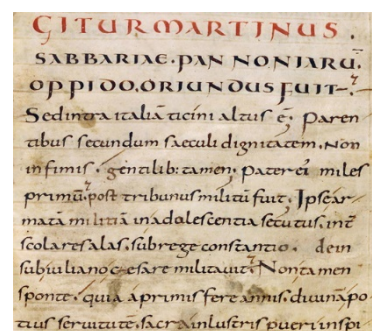 GITUR MARTINUS.
SABBARIAE. PANNONIARŪ.
OPPIDO. ORIUNDUS FUIT.
Sed intra italiā ticini altus ē; Paren
tibus secundum saeculi dignitatem. Non
infimis. gentilib: tamen; Pater ei miles
primū. post tribunus militū fuit; Ipse ar
matā militiā in adolescentia secutus. int̄
scolares alas. sub rege constantio. dein
sub iuliano cęsare militauit; Non tamen
sponte. quia a primis fere annis. diuinā po
tius seruitutē. sacra inlustris pueri inspi